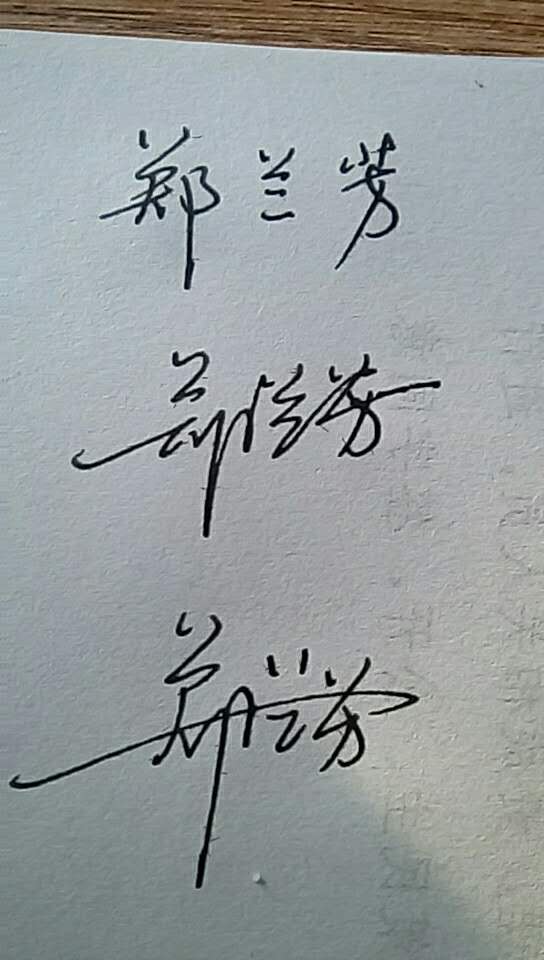 郑兰芳
郑兰芳
郑兰芳